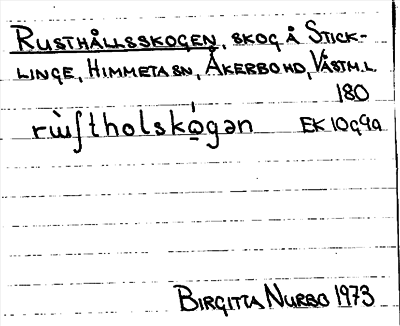 RUSTHÅLLSSKOGEN, SKOG Å STICK-
LINGE, HIMMETA SN, ÅKERBO HD, VÄSTM.L.
180
EK 10g9a
BIRGITTA NURBO 1973